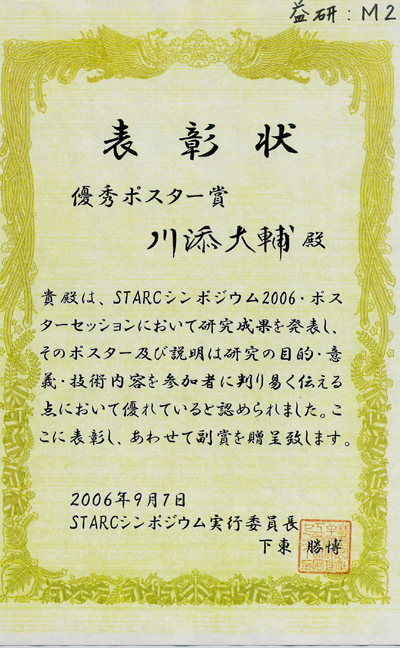 益研：M2
表彰状
優秀ポスター賞
川添大輔殿
貴殿は、STARCシンポジウム2006・ポス
ターセッションにおいて研究成果を発表し、
そのポスター及び説明は研究の目的・意
義・技術内容を参加者に判り易く伝える
点において優れていると認められました。こ
こに表彰し、あわせて副賞を贈呈致します。
2006年9月7日
STARCシンポジウム実行委員長
下東 勝博